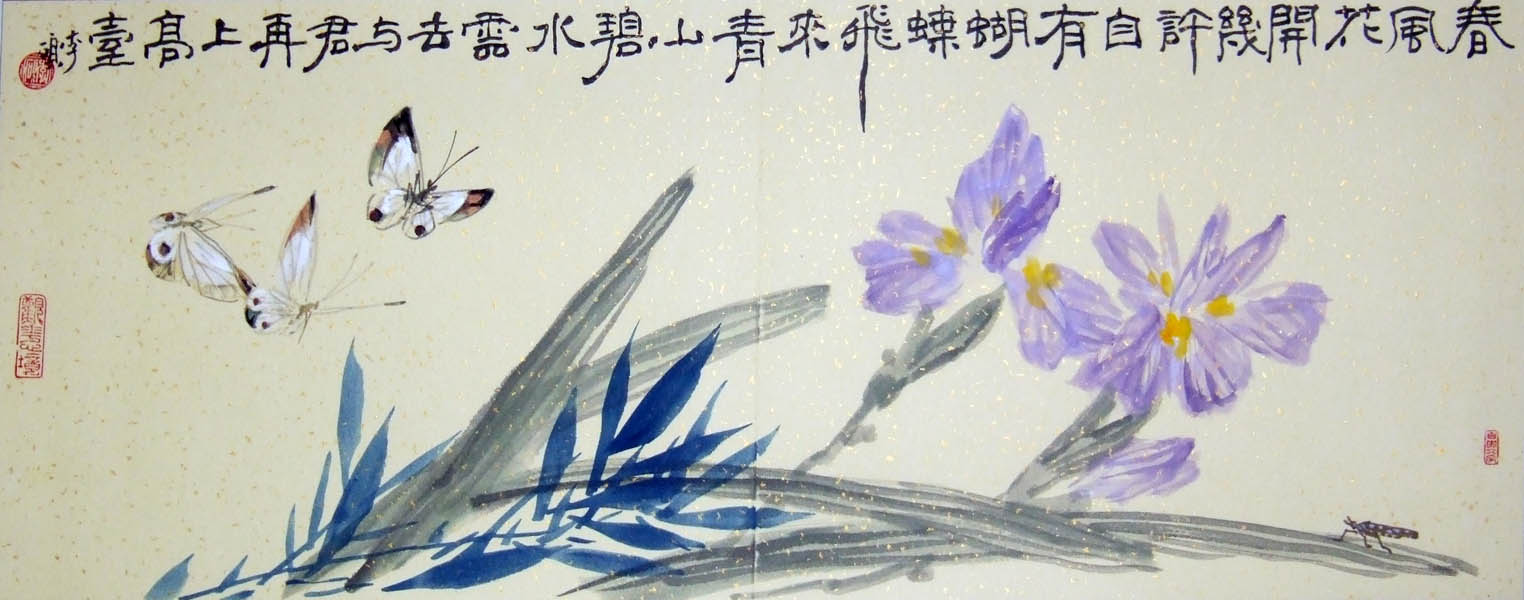 春風花開幾許自有蝴蝶飛來青山碧水雲去与君再上高臺